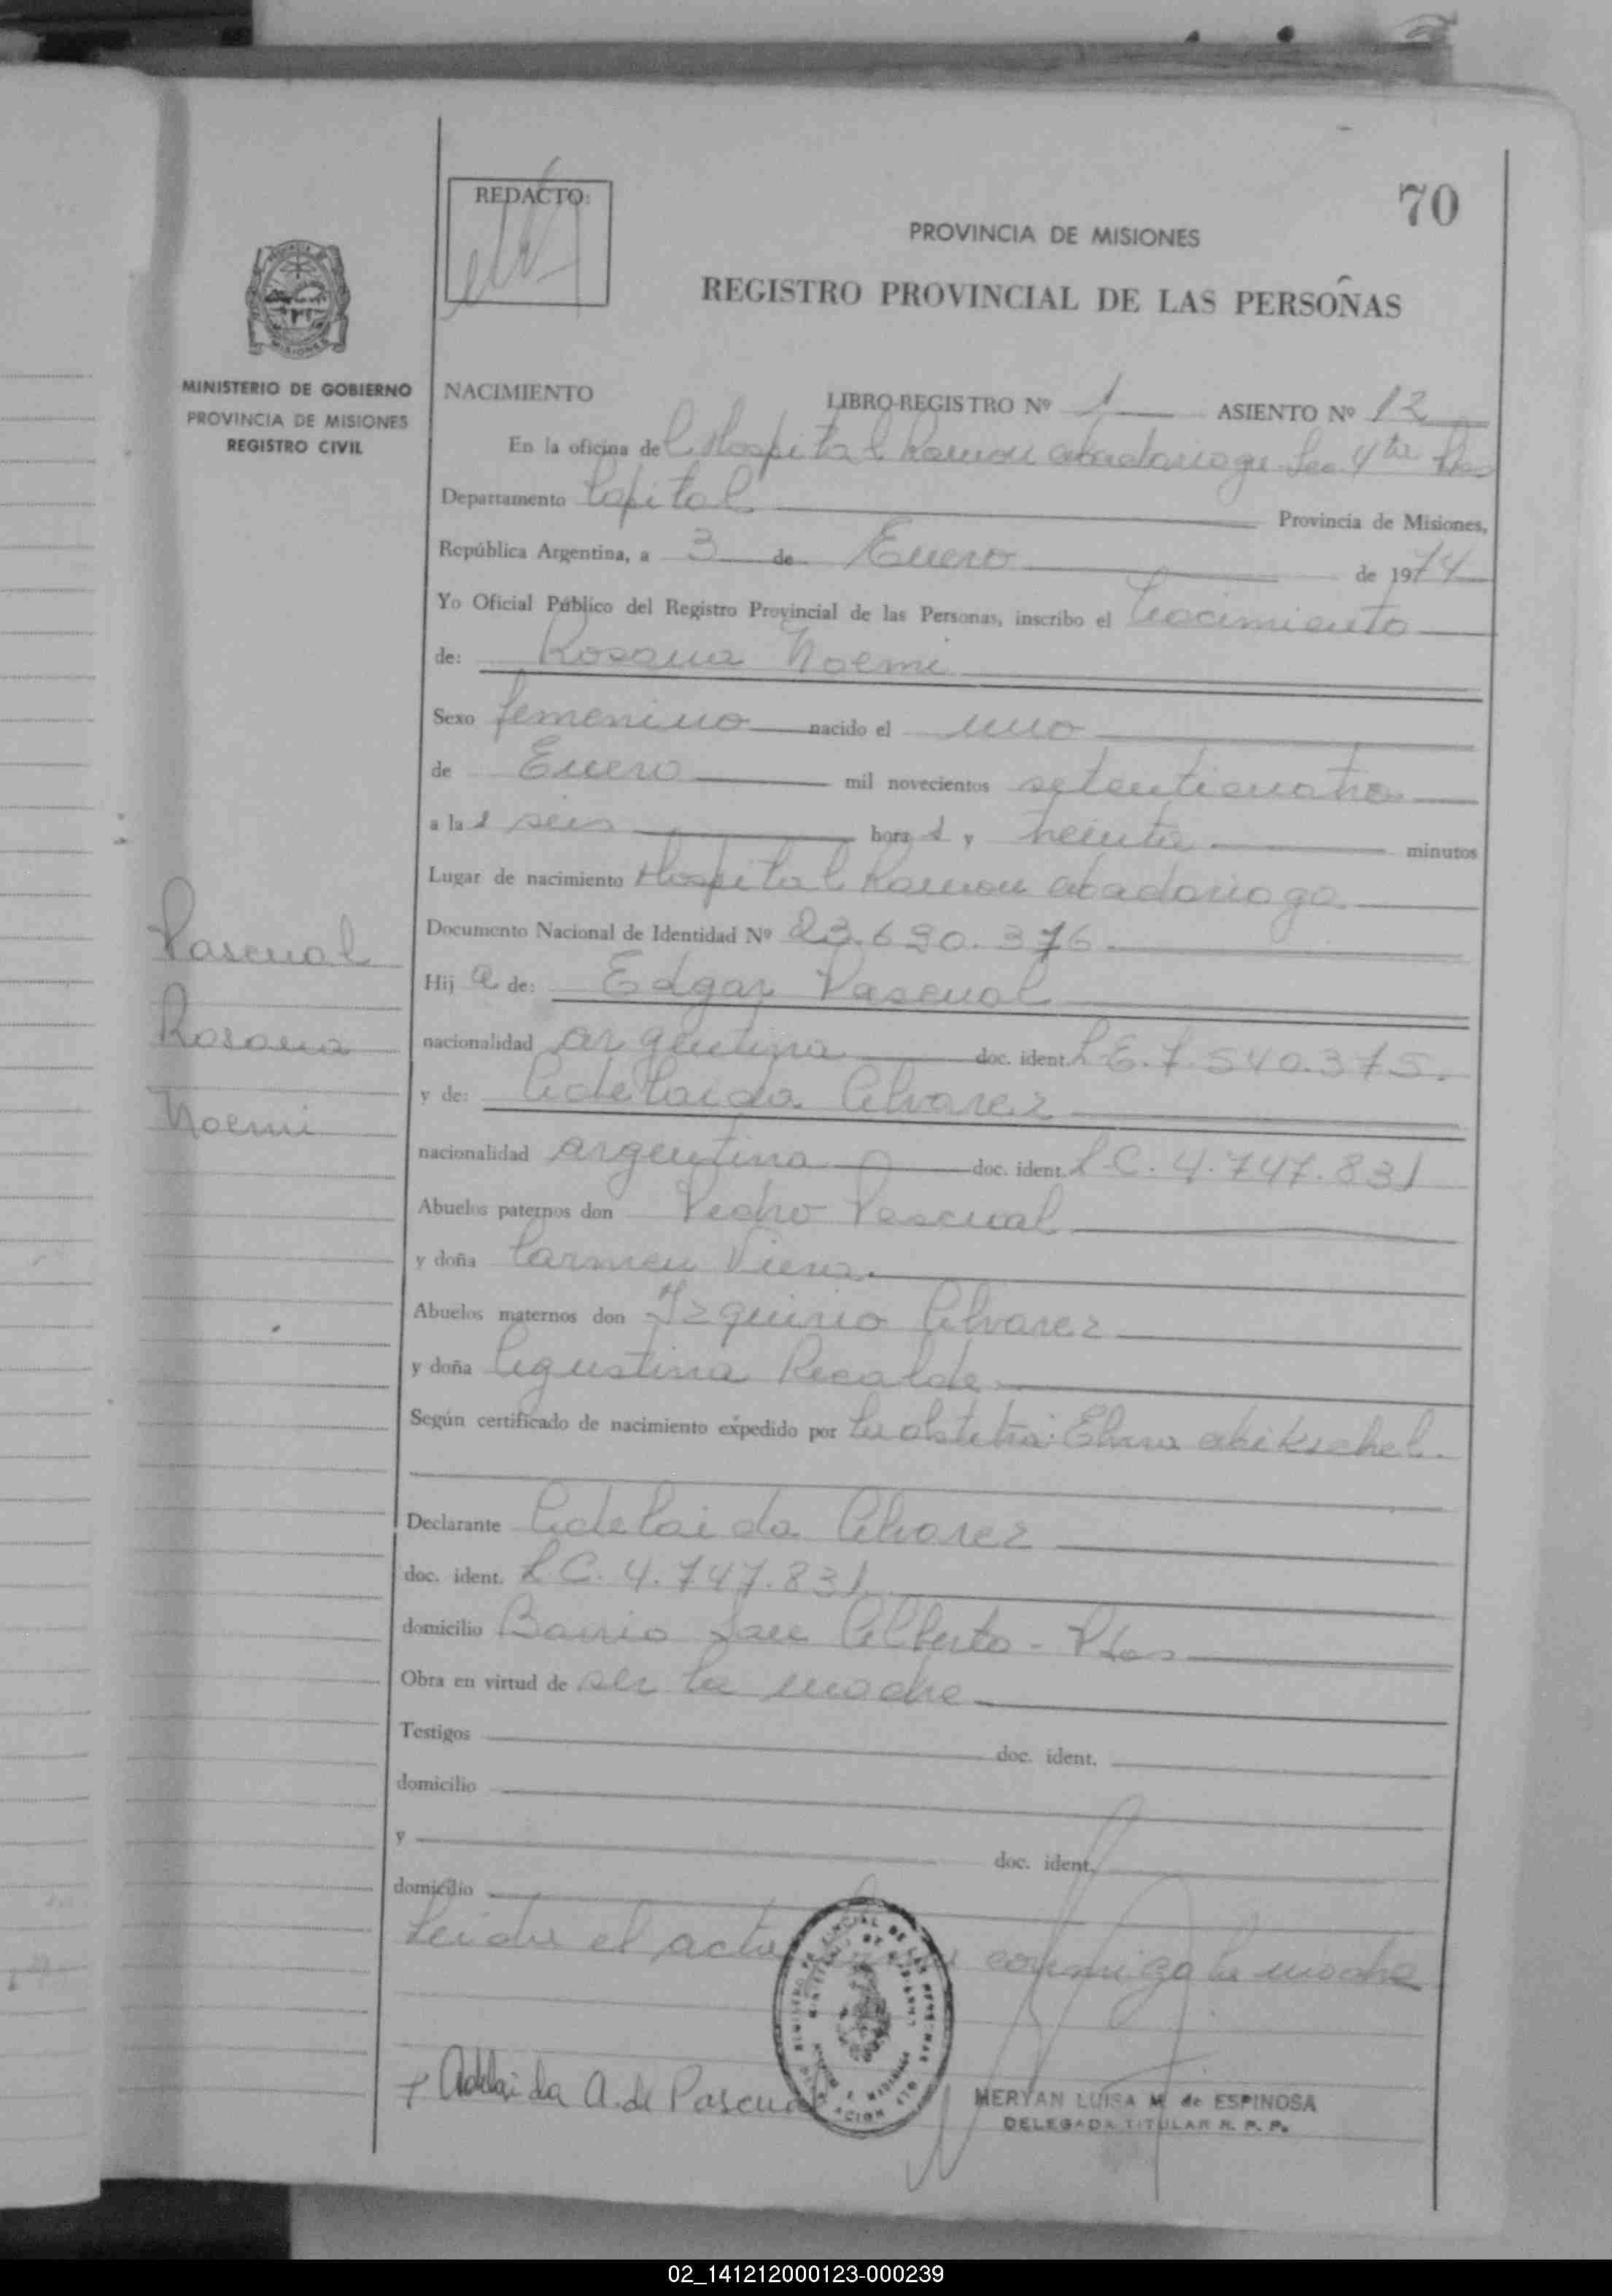 70
REDACTO:
PROVINCIA DE MISIONES
REGISTRO PROVINCIAL DE LAS PERSONAS
MISIONES
MINISTERIO DE GOBIERNO
PROVINCIA DE MISIONES
REGISTRO CIVIL
NACIMIENTO LIBRO-REGISTRO Nº 1 ASIENTO Nº 12
En la oficina del Hospital Ramon Madariaga Sec 4ta Pdas
Departamento Capital Provincia de Misiones,
República Argentina, a 3 de Enero de 1974
Yo Oficial Público del Registro Provincial de las Personas, inscribo el Nacimiento
de: Rosana Noemi
Sexo femenino nacido el uno
de Enero mil novecientos setenticuatro
a las seis horas y treinta minutos
Lugar de nacimiento Hospital Ramon Madariaga
Documento Nacional de Identidad Nº 23.690.376
Hija de: Edgar Pascual
nacionalidad argentina doc. ident. L.E. 7.540.375.
y de: Adelaida Alvarez
nacionalidad argentina doc. ident. L.C. 4.747.831
Abuelos paternos don Pedro Pascual
y doña Carmen Viera
Abuelos maternos don Alvarez
y doña Agustina Recalde
Según certificado de nacimiento expedido por la obstetra: Elena
Declarante Adelaida Alvarez
doc. ident. L.C. 4.747.831
domicilio Barrio San Alberto - Pdas
Obra en virtud de ser la madre
Testigos doc. ident.
domicilio
y doc. ident.
domicilio
Leida el acta conmigo la madre
Adelaida A. de Pascual
MERYAN LUISA M. de ESPINOSA
DELEGADA TITULAR R. P. P.
Pascual
Rosana
Noemi
02_141212000123-000239